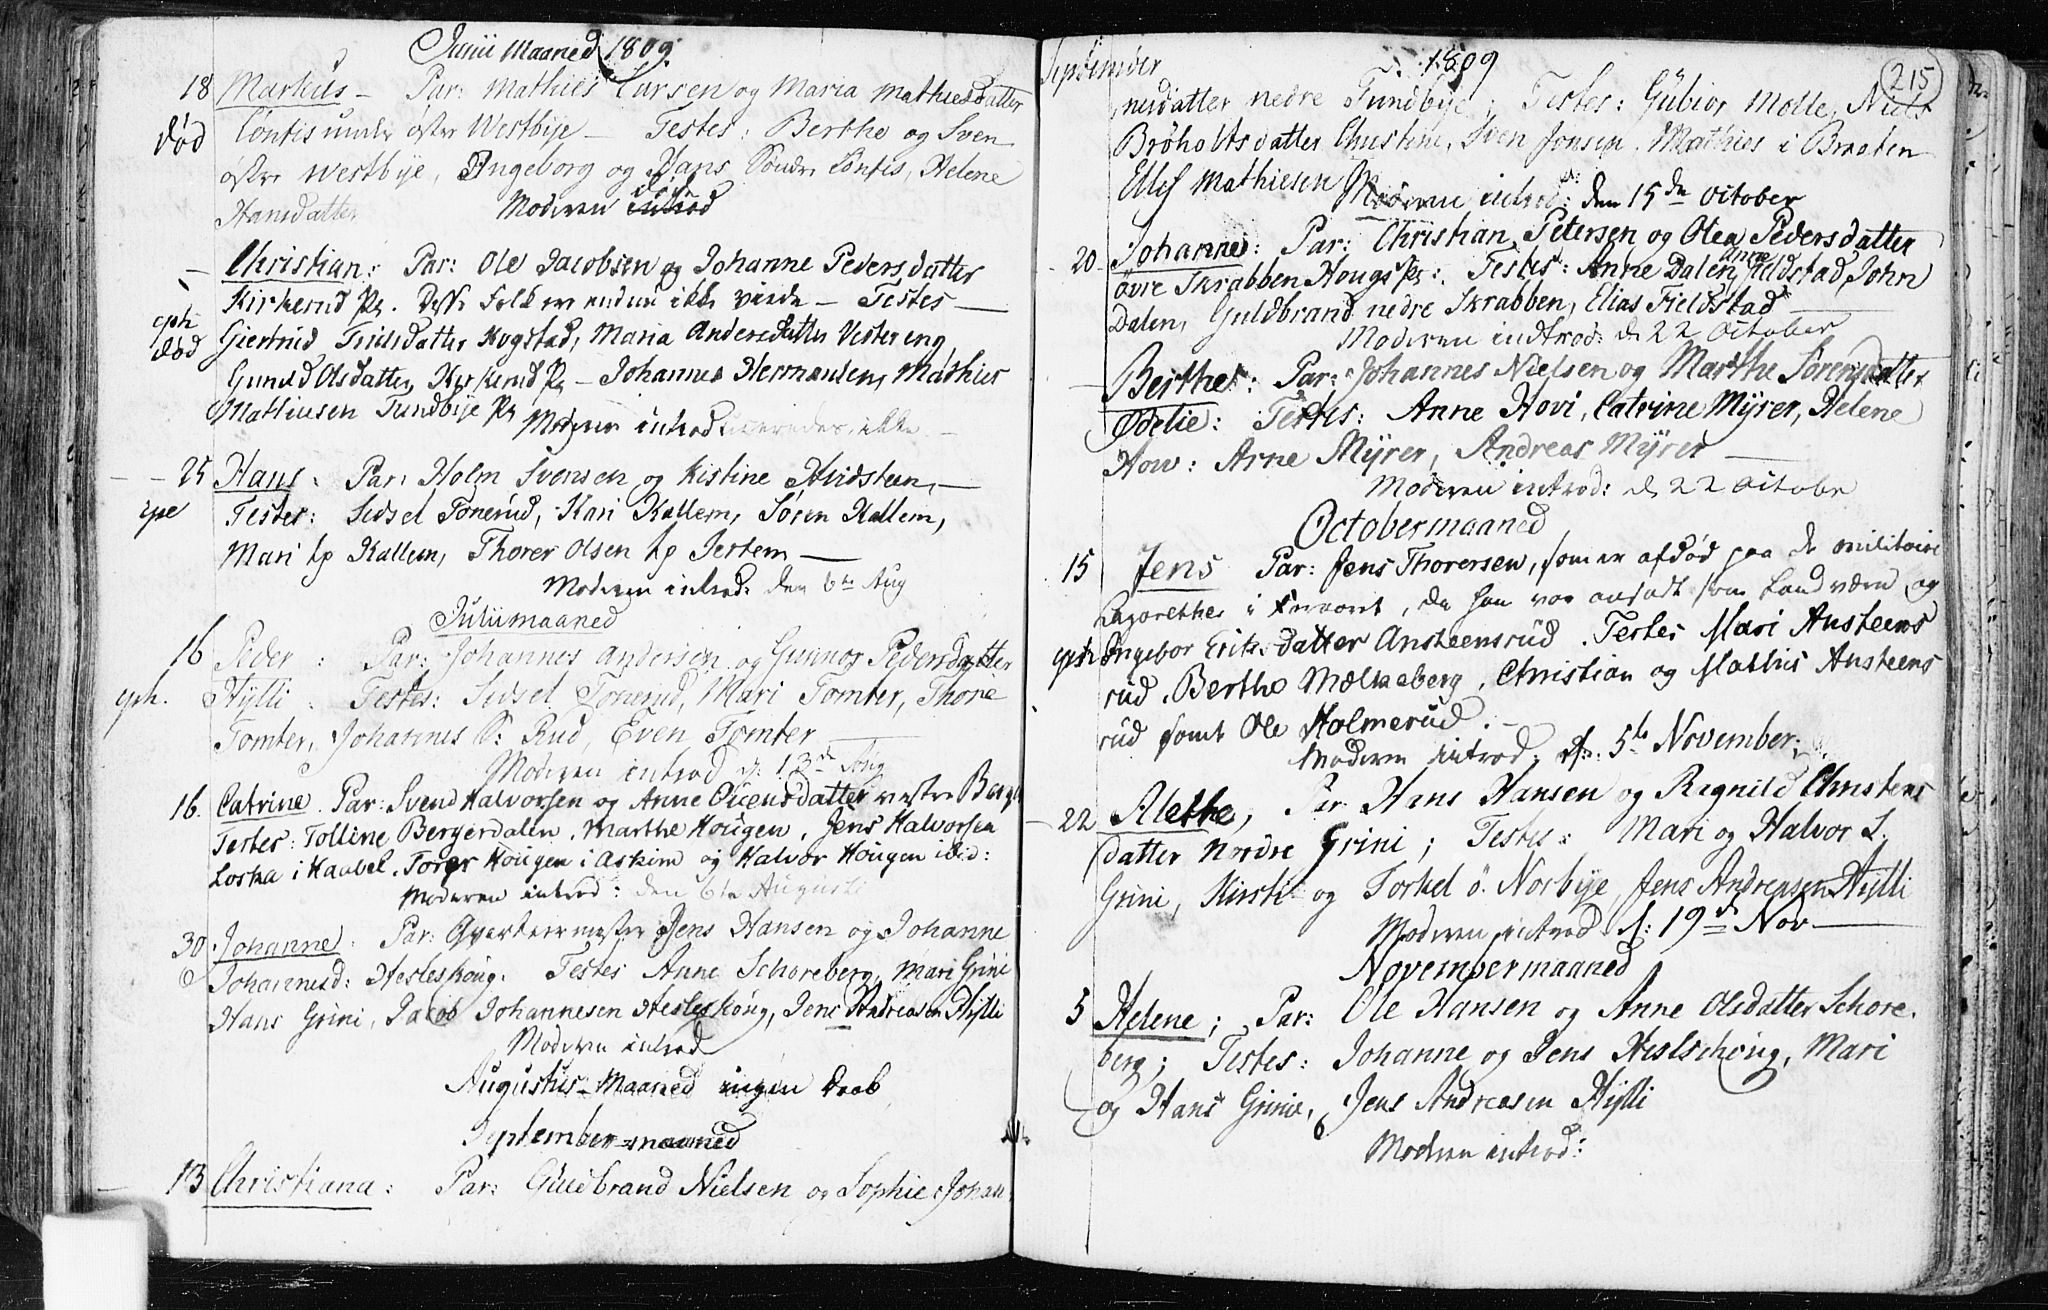 Junii Maaned 1809.
18 Markus – Par: Mathies Larsen og Maria Mathiesdatter
død Contis under øster Westbye – Testes: Berthe og Sven
østre Westbye, Ingeborg og Hans Søndre Contis, Helene
Hansdatter Moderen introd
– Christian: Par: Ole Jacobsen og Johanne Pedersdatter
Kirkerud Pl. Disse Folk ere endnu ikke viede – Testes –
eph død Giertrud Trulsdatter Hogstad, Maria Andersdatter Vestereng,
Gunild Olsdatter Kirkerud Pl – Johannes Hermansen, Mathies
Mathiesen Tundbye Pl Moderen introduceredes ikke –
25 Hans. Par: Holm Svensen og Kistine Hvidsteen, –
Testes: Sidsel Tonerud, Kari Kallem, Søren Kallem,
Mari Kallem, Thorer Olsen Jertem –
Moderen introd: den 6te Aug
Julii maaned
16 Peder: Par: Johannes Andersen og Gunnor Pedersdatter
eph. Hylli: Testes: Sidsel Tonerud, Mari Tomter, Thore
Tomter, Johannes S: Rud, Even Tomter –
Moderen introd d: 13de Aug
16. Catrine. Par: Svend Halvorsen og Anne Evensdatter vestre Berg
Testes: Tolline Bergerdalen, Marthe Hougen, Jens Halvorsen
Loska i Haabel, Torer Hougen i Askim og Halvor Hougen ibid:
Moderen introd: den 6te Augusti
30 Johanne: Par: Qvarteermester Jens Hansen og Johanne
Johannesd: Hesleskoug. Testes Anne Schoreberg, Mari Grini
Hans Grini, Jacob Johannesen Hesleskoug, Jens Andreasen Hylli
Moderen introd
Augustus-Maaned ingen Daab
September-maaned
13 Christiana: Par: Guldbrand Nielsen og Sophie Johan-
September 1809 215
nesdatter nedre Tundbye; Testes: Gubior Molle, Niels
Brøholtsdatter Christine, Sven Jonsen, Mathies i Braaten
Ellef Mathiesen Moderen introd: den 15de October
20 Johannes: Par: Christian Petersen og Olea Pedersdatter
øvre Skrabben Hougs Pl: Testes: Anne Dalen, Anne Fieldstad, John
Dalen, Guldbrand nedre Skrabben, Elias Fieldstad –
Moderen indtrod: d 22 October
– Berthe: Par: Johannes Nielsen og Marthe Sørensdatter
Ødelie: Testes: Anne Hovi, Catrine Myrer, Helene
How: Arne Myrer, Andreas Myrer –
Moderen introd: d 22 Octobr
Octobermaaned
15 Jens Par: Jens Thorersen, som er afdød paa de militaire
Lazarether i, da han var ansadt som Landværn, og
eph Ingebor Eriksdatter Ansteensrud. Testes Mari Ansteens
rud, Berthe Mælkeberg, Christian og Mathis Ansteens
rud samt Ole Holmerud. –
Moderen introd. d: 5te November.
22 Alethe, Par Hans Hansen og Ragnild Christens
datter Nordre Grini; Testes: Mari og Halvor L.
Grini, Kirsti og Torkel ö. Norbye, Jens Andreasen Hylli
Moderen introd d: 19de Nov –
Novembermaaned
5 Helene; Par: Ole Hansen og Anne Olsdatter Schore-
berg; Testes: Johanne og Jens Heslschoug, Mari
og Hans Grinie, Jens Andreasen Hylli
Moderen introd: